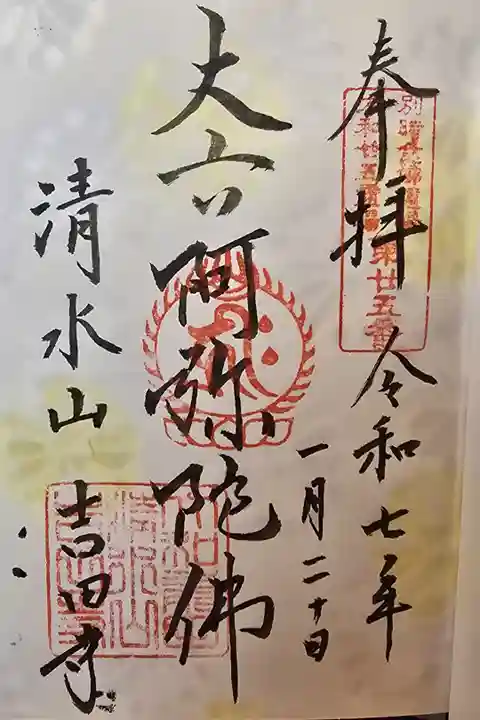 奉拝
令和七年
一月二十日
大六阿弥陀佛
清水山
吉田寺
第廿五番